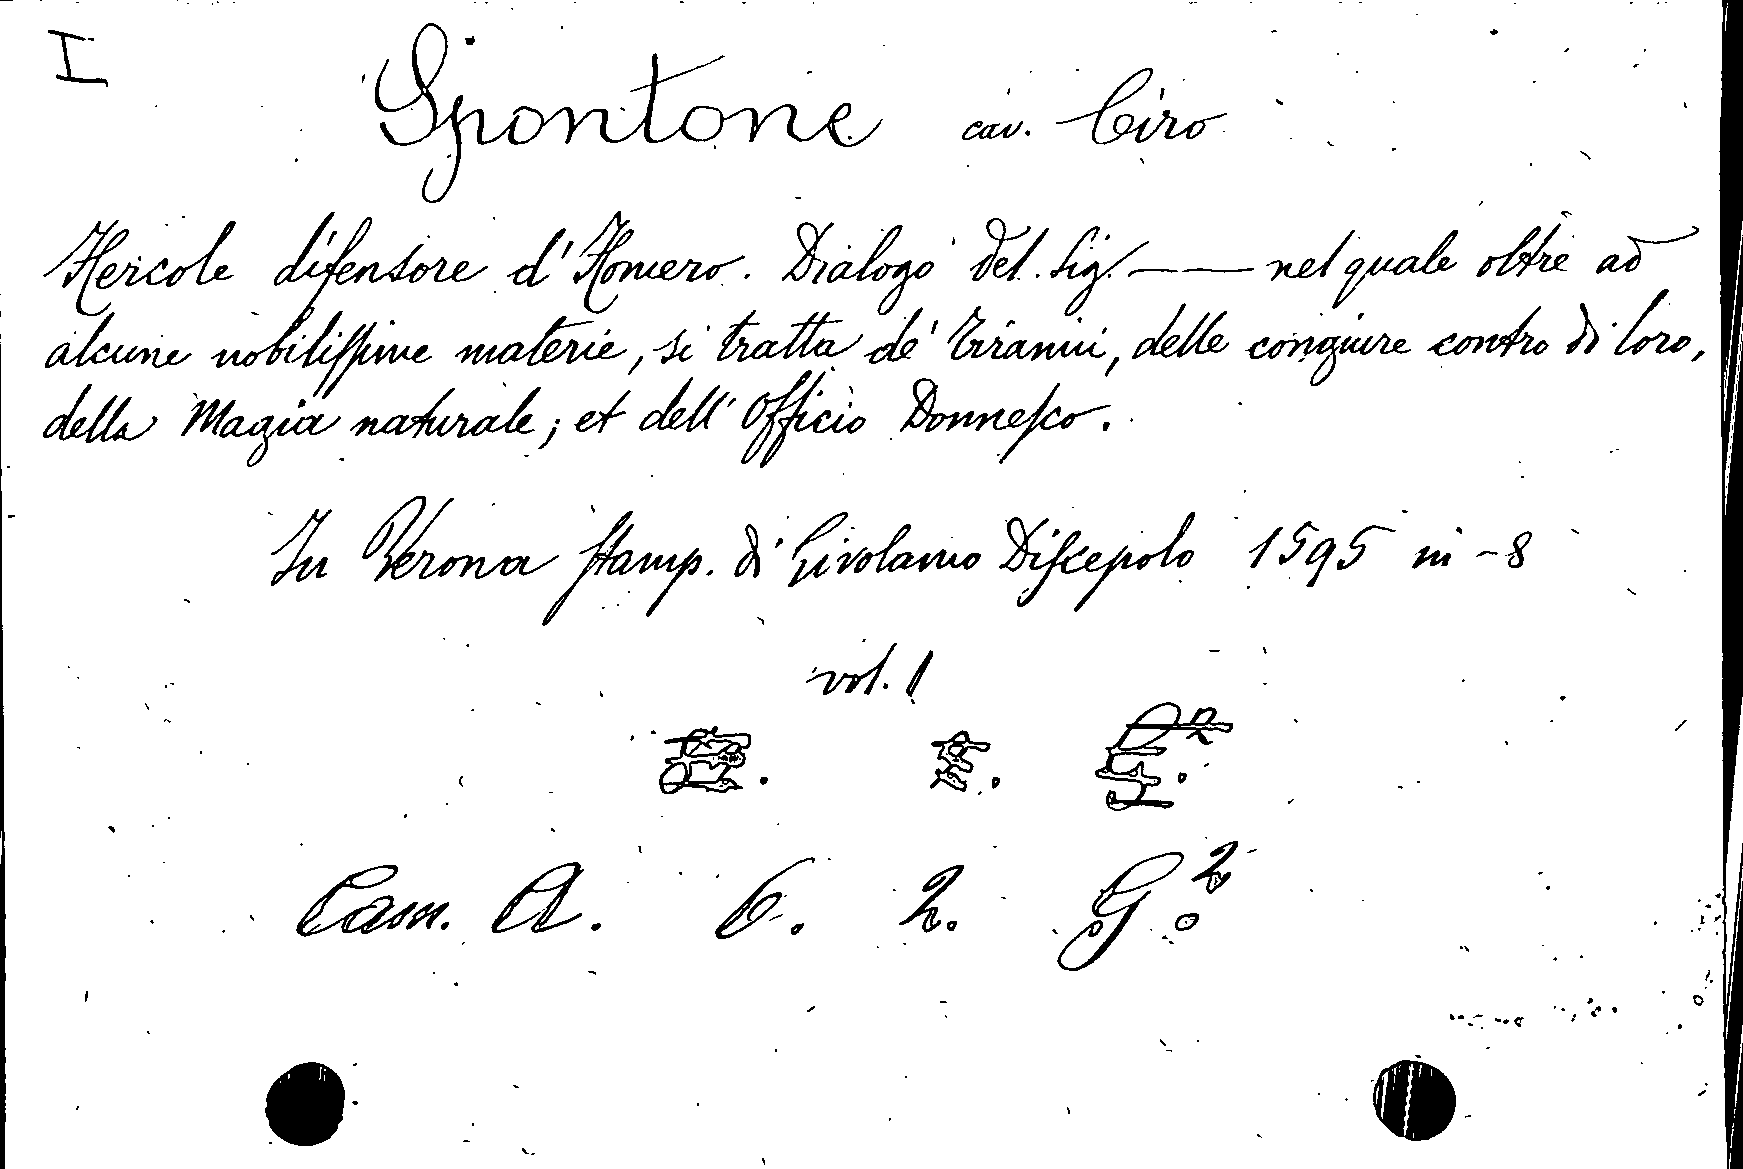 I
Spontone cav. Ciro
Hercole difensore d'Homero. Dialogo del Sig. —— nel quale oltre ad
alcune nobiliſſime materie, si tratta de' Tiranni, delle congiure contro di loro,
della Magia naturale; et dell'Officio Donneſco.
In Verona ſtamp. di Girolamo Diſcepolo 1595 in-8
vol. 1
Cam. A. 6. 2. G.2